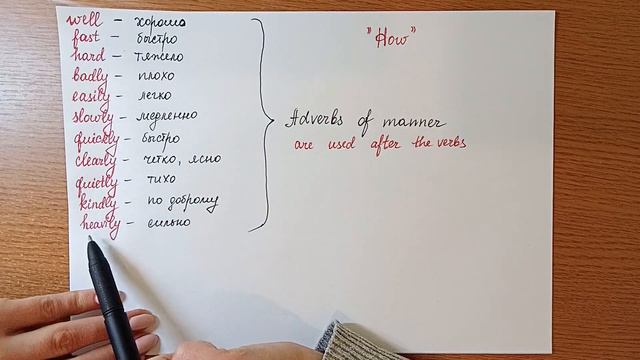 well – хорошо
fast – быстро
hard – тяжело
badly – плохо
easily – легко
slowly – медленно
quickly – быстро
clearly – четко, ясно
quietly – тихо
kindly – по доброму
heavily – сильно
"How"
Adverbs of manner
are used after the verbs